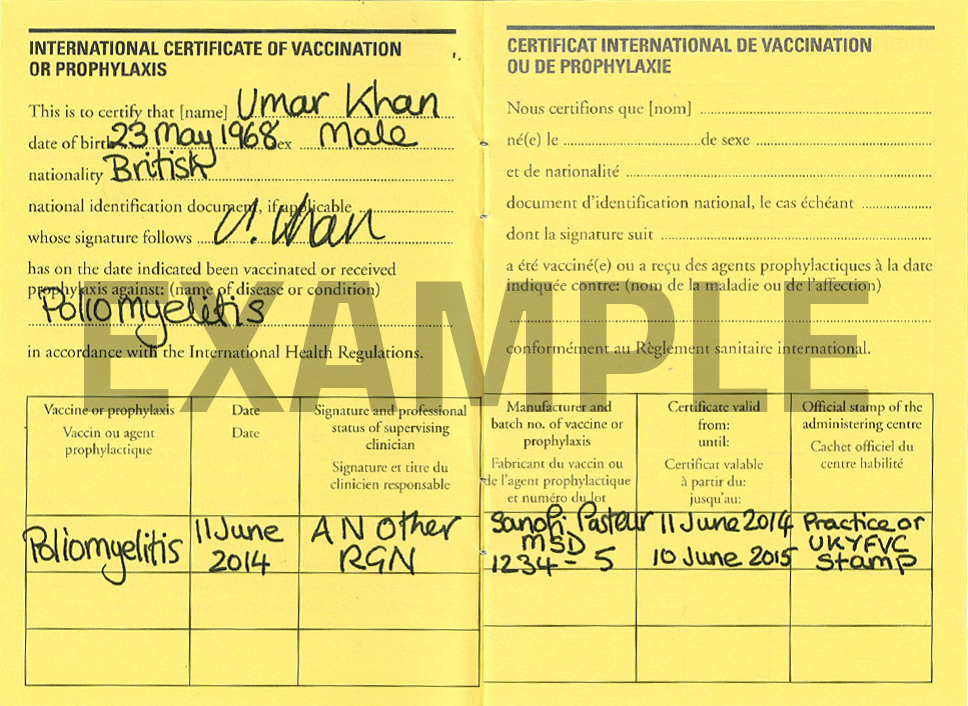 INTERNATIONAL CERTIFICATE OF VACCINATION
OR PROPHYLAXIS
This is to certify that [name] Umar Khan
date of birth 23 May 1968 sex Male
nationality British
national identification document, if applicable
whose signature follows U. Khan
has on the date indicated been vaccinated or received
prophylaxis against: (name of disease or condition)
Poliomyelitis
in accordance with the International Health Regulations.
CERTIFICAT INTERNATIONAL DE VACCINATION
OU DE PROPHYLAXIE
Nous certifions que [nom]
né(e) le de sexe
et de nationalité
document d'identification national, le cas échéant
dont la signature suit
a été vacciné(e) ou a reçu des agents prophylactiques à la date
indiquée contre: (nom de la maladie ou de l'affection)
conformément au Règlement sanitaire international.
EXAMPLE
Vaccine or prophylaxis
Vaccin ou agent
prophylactique
Date
Date
Signature and professional
status of supervising
clinician
Signature et titre du
clinicien responsable
Manufacturer and
batch no. of vaccine or
prophylaxis
Fabricant du vaccin ou
de l'agent prophylactique
et numéro du lot
Certificate valid
from:
until:
Certificat valable
à partir du:
jusqu'au:
Official stamp of the
administering centre
Cachet officiel du
centre habilité
Poliomyelitis
11 June
2014
A N Other
RGN
Sanofi Pasteur
MSD
1234 - 5
11 June 2014
10 June 2015
Practice or
UKYFVC
Stamp